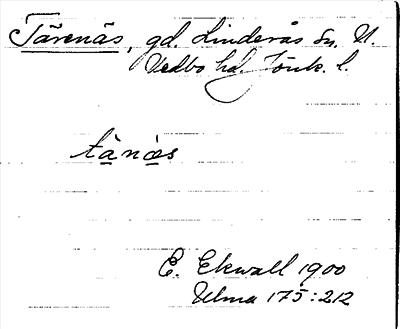 Tärenäs, gd. Linderås sn. N.
Vedbo hd. Jönk. l.
tànàs
E. Ekwall 1900
Ulma 175:212